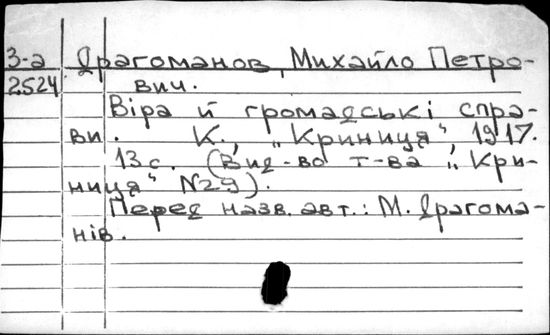 З-а Драгоманов, Михайло Петро-
2524 вич.
Віра й громадські спра-
ви. К., „Криниця", 1917.
13 с. (Вид-во т-ва „Кри-
ниця" N29).
Перед назв. авт.: М. Драгома-
нів.